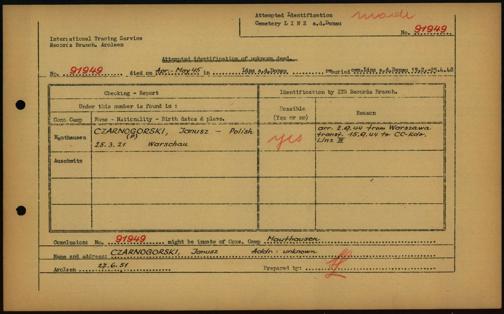 Attempted Identification
Cemetery L I N Z a.d.Donau
No. 91949
International Tracing Service
Records Branch, Arolsen
Attempted identification of unknown dead.
No. 91949 died on Apr.-May 45 in Linz a.d.Donau buried
Checking - Report
Identification by ITS Records Branch.
Under this number is found is :
Possible
(Yes or no)
Reason
Conc Camp
Name - Nationality - Birth dates & place.
Mauthausen
CZARNOGORSKI, Janusz - Polish
(P)
25.3.21 Warschau
yes
arr. 2.9.44 from Warszawa
transf. 15.9.44 to CC-Kdo.
Linz III
Auschwitz
Conclusion: No. 91949 might be inmate of Conc. Camp Mauthausen
Name and address: CZARNOGORSKI, Janusz Addr: unknown
Arolsen 23.6.51 Prepared by: